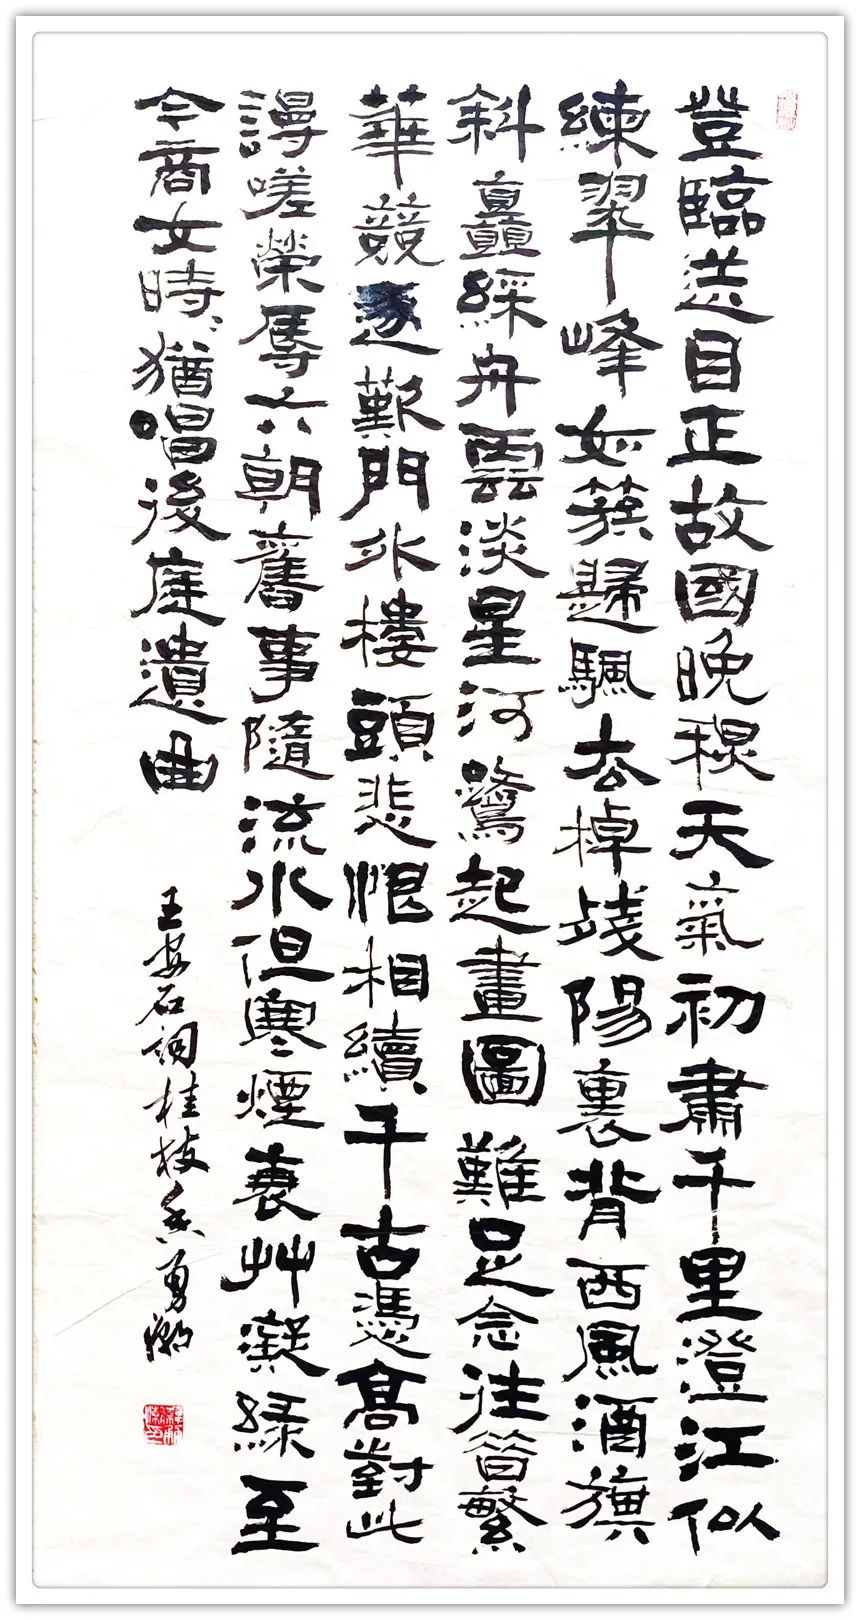 登臨送目正故國晚穐天氣初肅千里澄江似
練翠峰如簇歸颿去棹殘陽裏背西風酒旗
斜矗綵舟雲淡星河鷺起畫圖難足念往昔繁
華競逐歎門外樓頭悲恨相續千古憑高對此
謾嗟榮辱六朝舊事隨流水但寒煙衰艸凝綠至
今商女時時猶唱後庭遺曲
王安石詞桂枝香勇